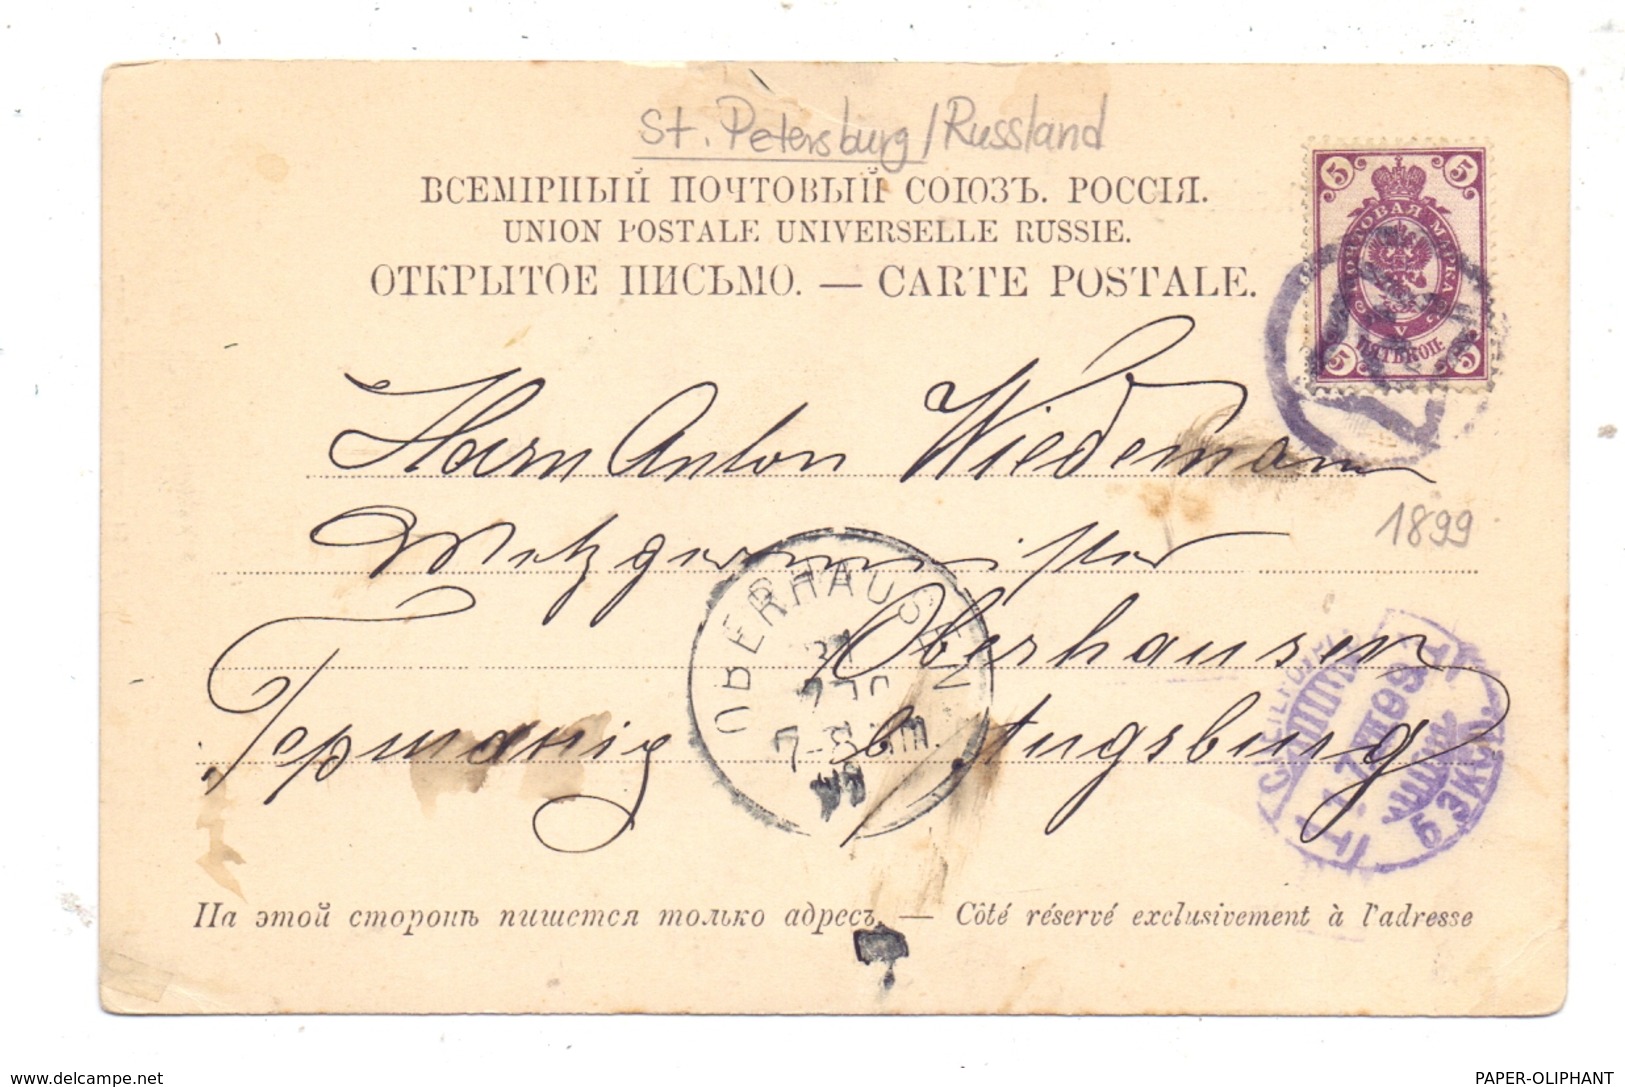 St. Petersburg/Russland
ВСЕМІРНЫЙ ПОЧТОВЫЙ СОЮЗЪ. РОССІЯ.
UNION POSTALE UNIVERSELLE RUSSIE.
ОТКРЫТОЕ ПИСЬМО. — CARTE POSTALE.
5 5
ПОЧТОВАЯ МАРКА
V
ПЯТЬ КОП.
5 5
Herrn Anton Wiedemann
1899
Metzgermeister
OBERHAUSEN
Oberhausen
Германія b/ Augsburg
7-8
На этой сторонѣ пишется только адресъ. — Côté réservé exclusivement à l'adresse
delcampe.net
PAPER-OLIPHANT